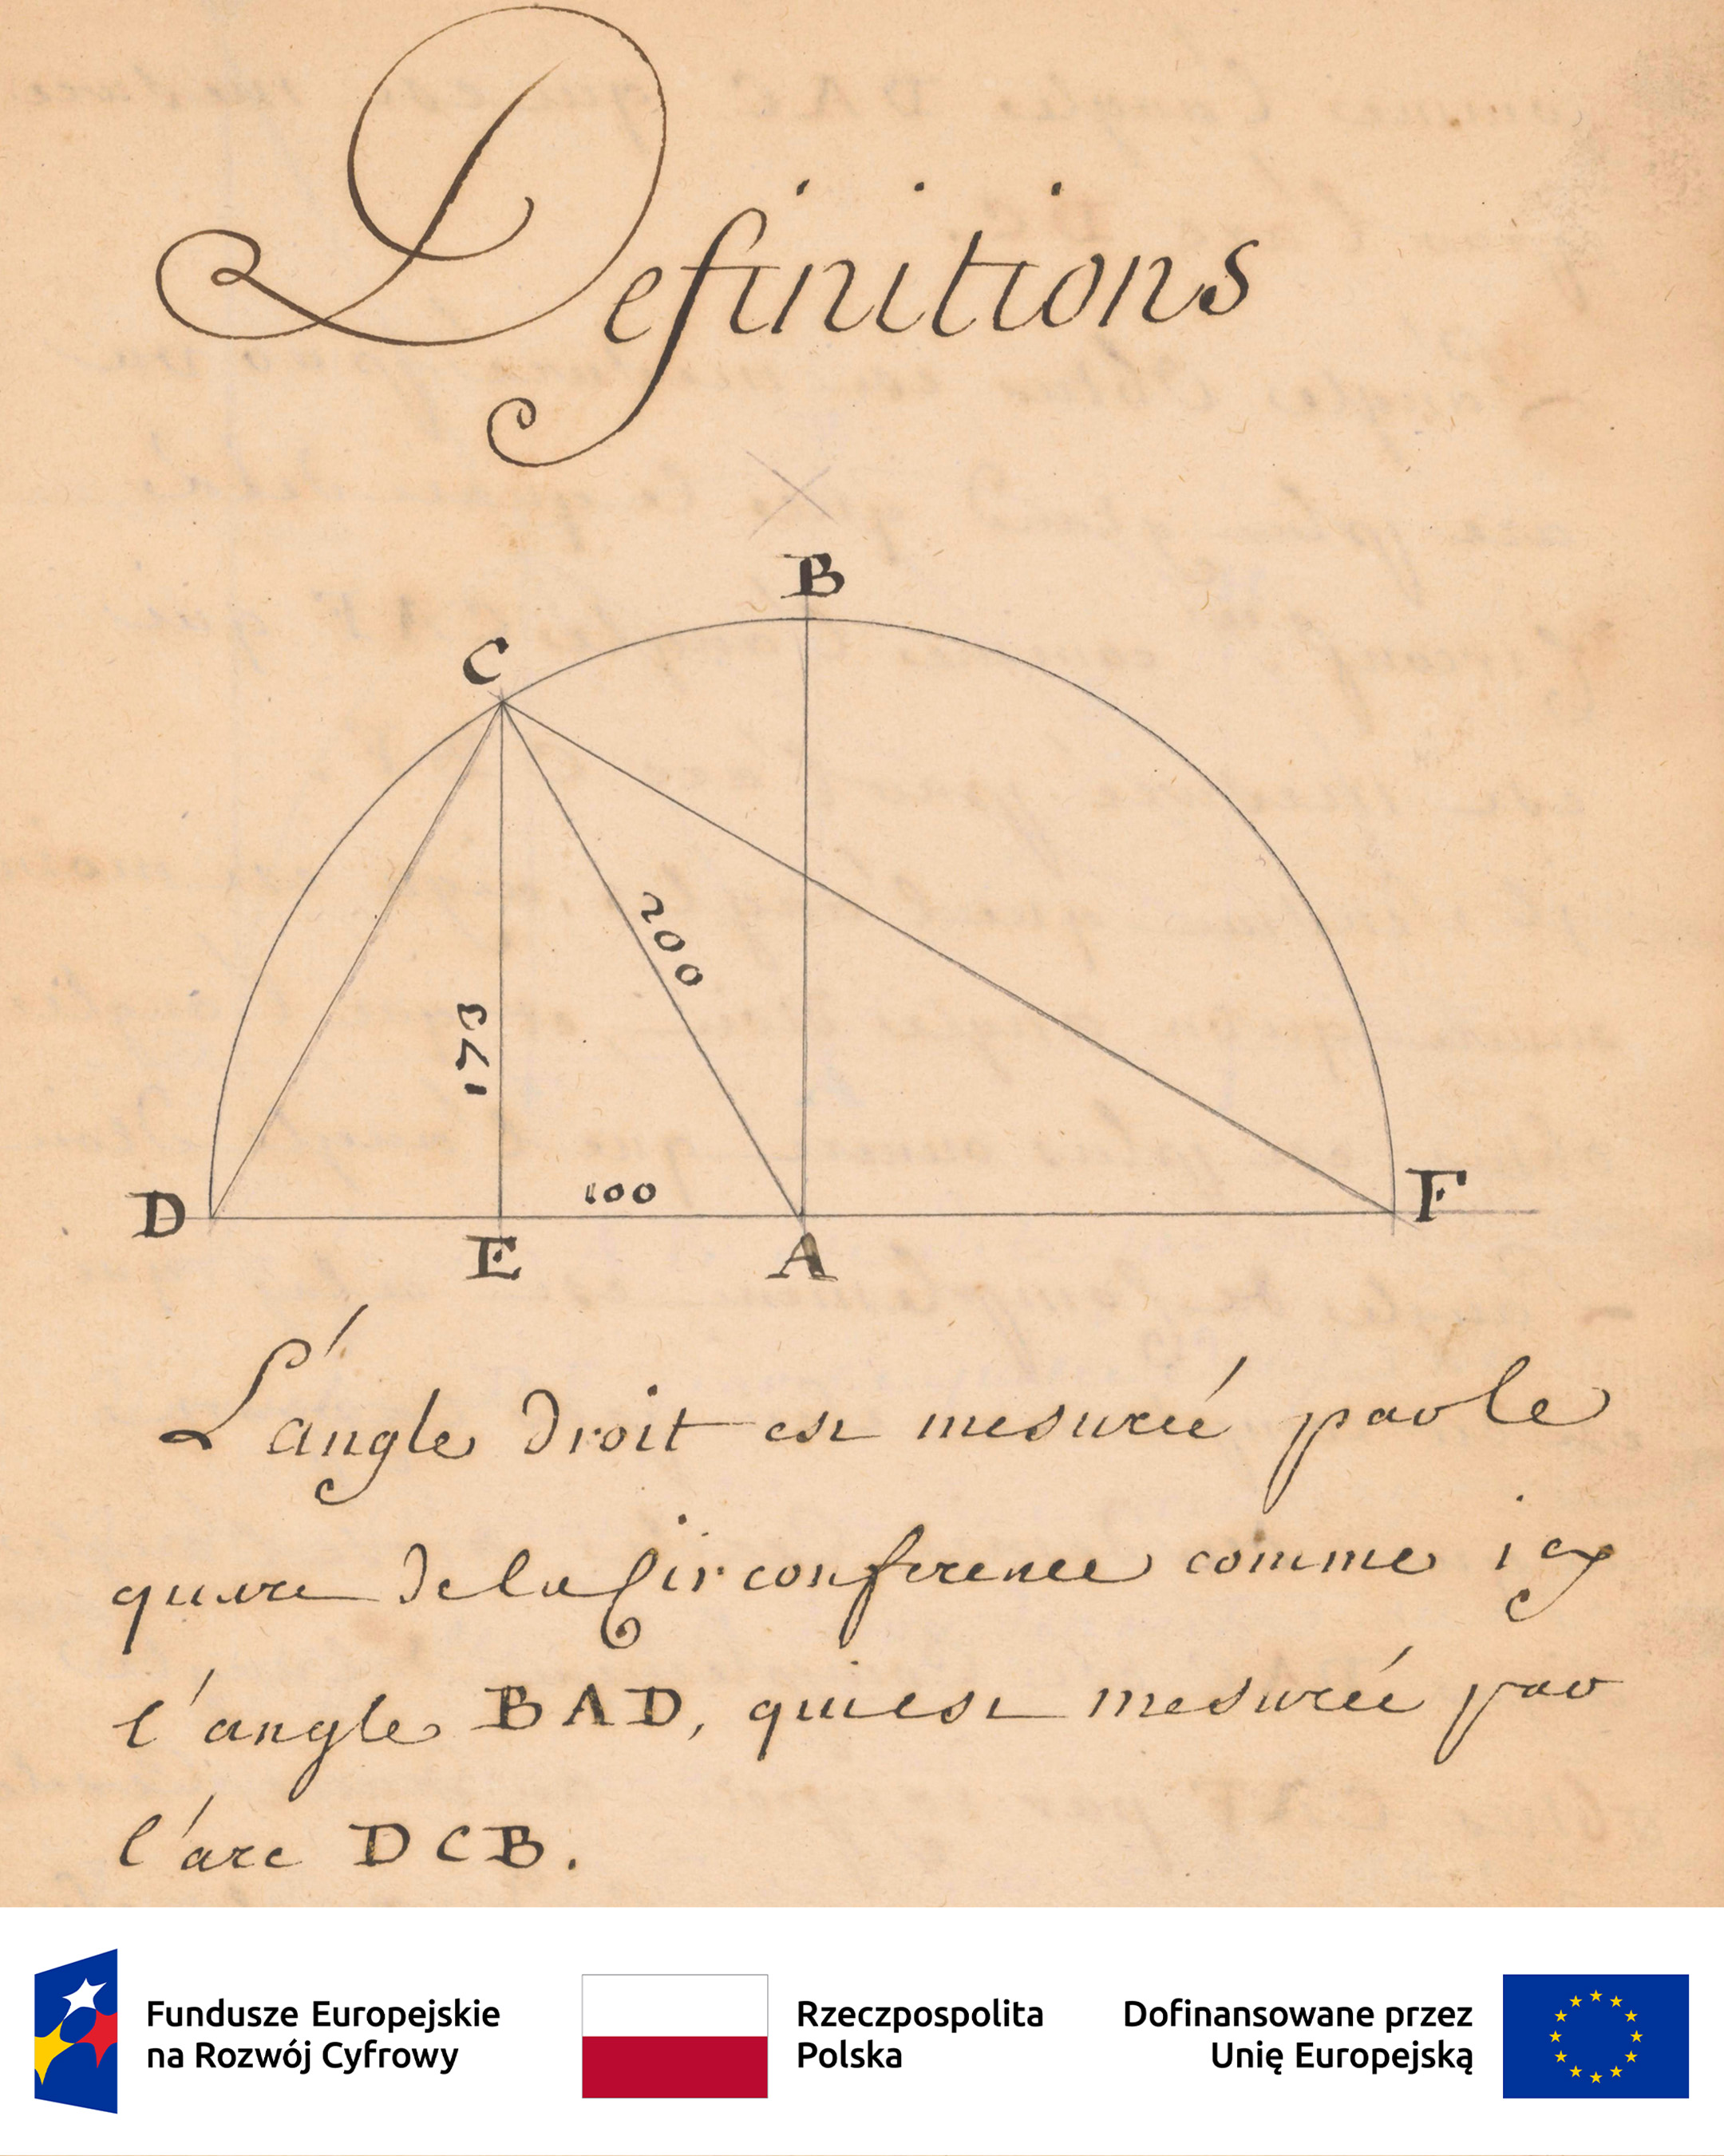 Definitions
B
C
200
173
100
D
E
A
F
L'angle droit est mesureé par le
quart de la Circonference comme icy
l'angle BAD, qui est mesureé par
l'arc DCB.
Fundusze Europejskie
na Rozwój Cyfrowy
Rzeczpospolita
Polska
Dofinansowane przez
Unię Europejską